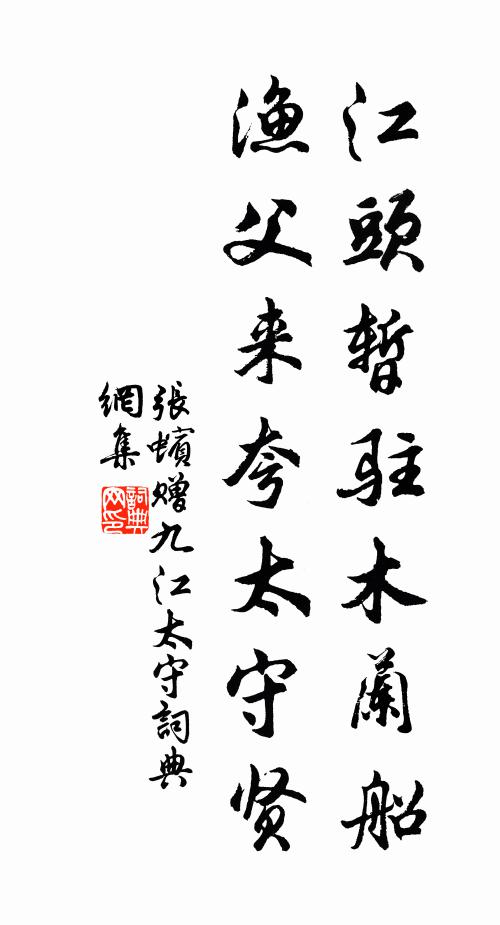 江頭暫駐木蘭船
渔父来夸太守贤
張蠙贈九江太守詞典
網集
詞典
网印